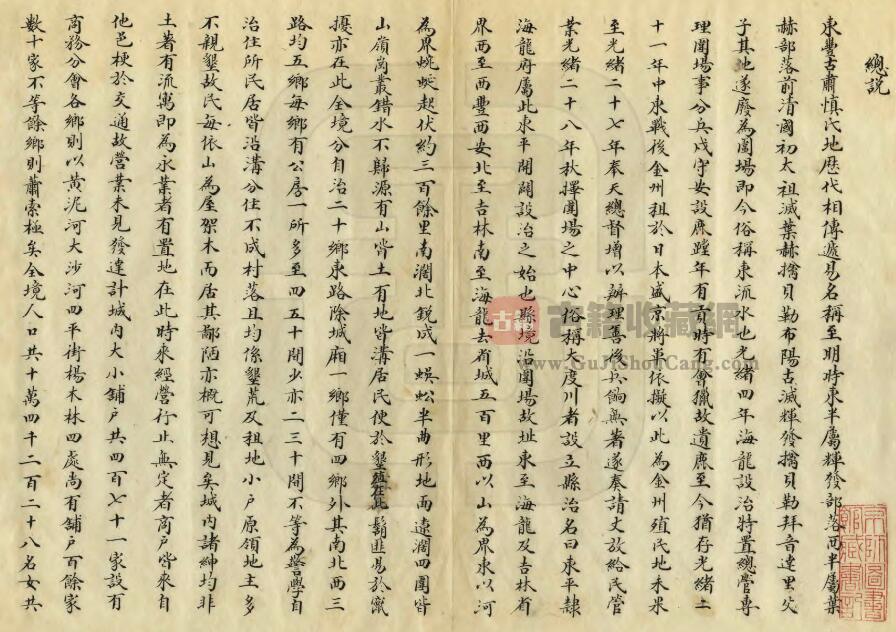 總說
東豐古肅慎氏地歷代相傳遞易名稱至明時東半屬輝發部落西半屬葉
赫部落前清國初太祖滅葉赫擒貝勒布陽古滅輝發擒貝勒拜音達里父
子其地遂廢為圍場即今俗稱東流水也光緒四年海龍設治特置總管專
理圍場事分兵戍守安設鹿蹚年有貢時有會獵故遺鹿至今猶存光緒二
十一年中東戰後金州租於日本盛京將軍依擬以此為金州殖民地未果
至光緒二十七年奉天總督增以辦理善後兵餉無著遂奉請丈放給民管
業光緒二十八年秋擇圍場之中心俗稱大度川者設立縣治名曰東平隸
海龍府屬此東平開闢設治之始也縣境沿圍場故址東至海龍及吉林省
界西至西豐西安北至吉林南至海龍去省城五百里西以山為界東以河
為界蜿蜒起伏約三百餘里南濶北銳成一蜈蚣半曲形地面遼濶四圍皆
山嶺崗叢錯水不歸源有山皆土有地皆溝居民便於墾殖在此鬍匪易於竄
擾亦在此全境分自治二十鄉東路除城廂一鄉僅有四鄉外其南北西三
路均五鄉每鄉有公房一所多至四五十間少亦二三十間不等為警學自
治住所民居皆沿溝分住不成村落且均係墾荒及租地小戶原領地主多
不親墾故民每依山為屋架木而居其鄙陋亦概可想見矣城內諸紳均非
土著有流寓即為永業者有置地在此時來經營行止無定者商戶皆來自
他邑梗於交通故營業未見發達計城內大小舖戶共四百七十一家設有
商務分會各鄉則以黃泥河大沙河四平街楊木林四處尚有舖戶百餘家
數十家不等餘鄉則蕭索極矣全境人口共十萬四千二百二十八名女共
古籍
古籍收藏网
www.GuJiShouCang.com